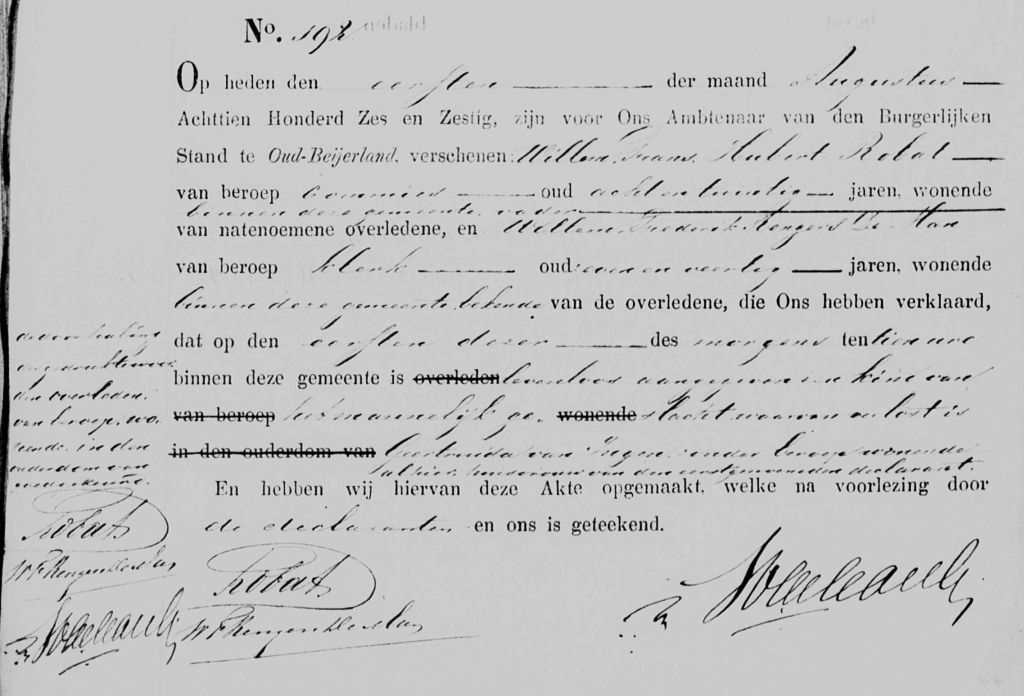 No. 192
Op heden den eersten der maand Augustus
Achttien Honderd Zes en Zestig, zijn voor Ons Ambtenaar van den Burgerlijken
Stand te Oud-Beijerland, verschenen: Willem Frans Hubert Robat
van beroep commies oud acht en twintig jaren, wonende
binnen deze gemeente, vader
van natenoemene overledene, en Willem Frederik Rengers De Man
van beroep klerk oud zeven en veertig jaren, wonende
binnen deze gemeente, bekende van de overledene, die Ons hebben verklaard,
dat op den eersten dezer des morgens ten tien ure
binnen deze gemeente is overleden levenloos aangegeven een kind van
van beroep het mannelijk ge- wonende slacht, waarvan verlost is
in den ouderdom van Geertruida van zonder beroep wonende
alhier, huisvrouw van den eerstgenoemden declarant.
En hebben wij hiervan deze Akte opgemaakt, welke na voorlezing door
de declaranten en ons is geteekend.
de doorhaling
der gedrukte woorden
overleden,
van beroep, wo-
nende, in den
ouderdom van
goedgekeurd.
Robat
Robat